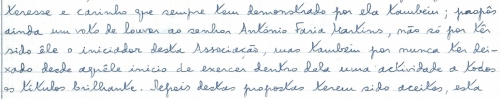 teresse e carinho que sempre tem demonstrado por ela tambem; propôs
ainda um voto de louvor ao senhor António Faria Martins, não só por têr
sido êle o iniciador desta Associação, mas tambem por nunca ter dei-
xado desde aquêle inicio de exercer dentro dela uma actividade a todos
os titulos brilhante. Depois destas propostas terem sido aceites, esta